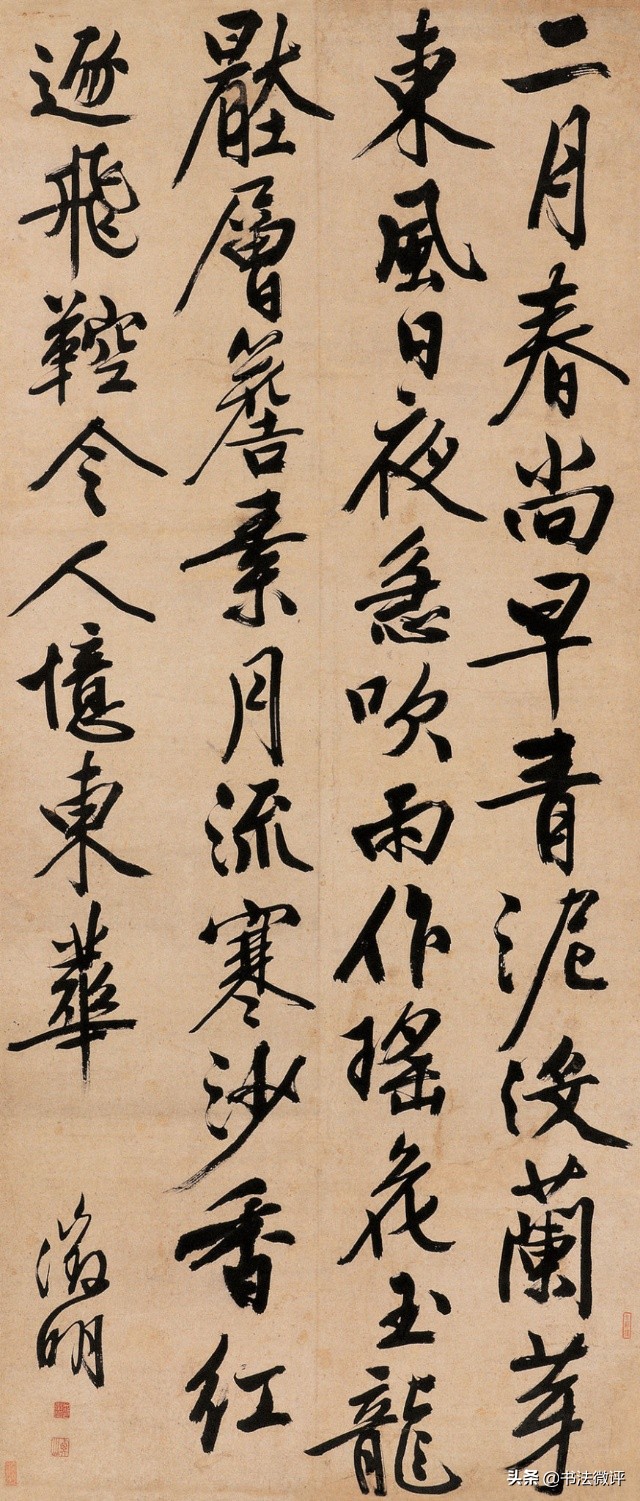 二月春尚早青泥沒蘭芽
東風日夜急吹雨作瑤花玉龍
壓層簷素月流寒沙香紅
逐飛鞚令人憶東華
徵明
头条@书法微评